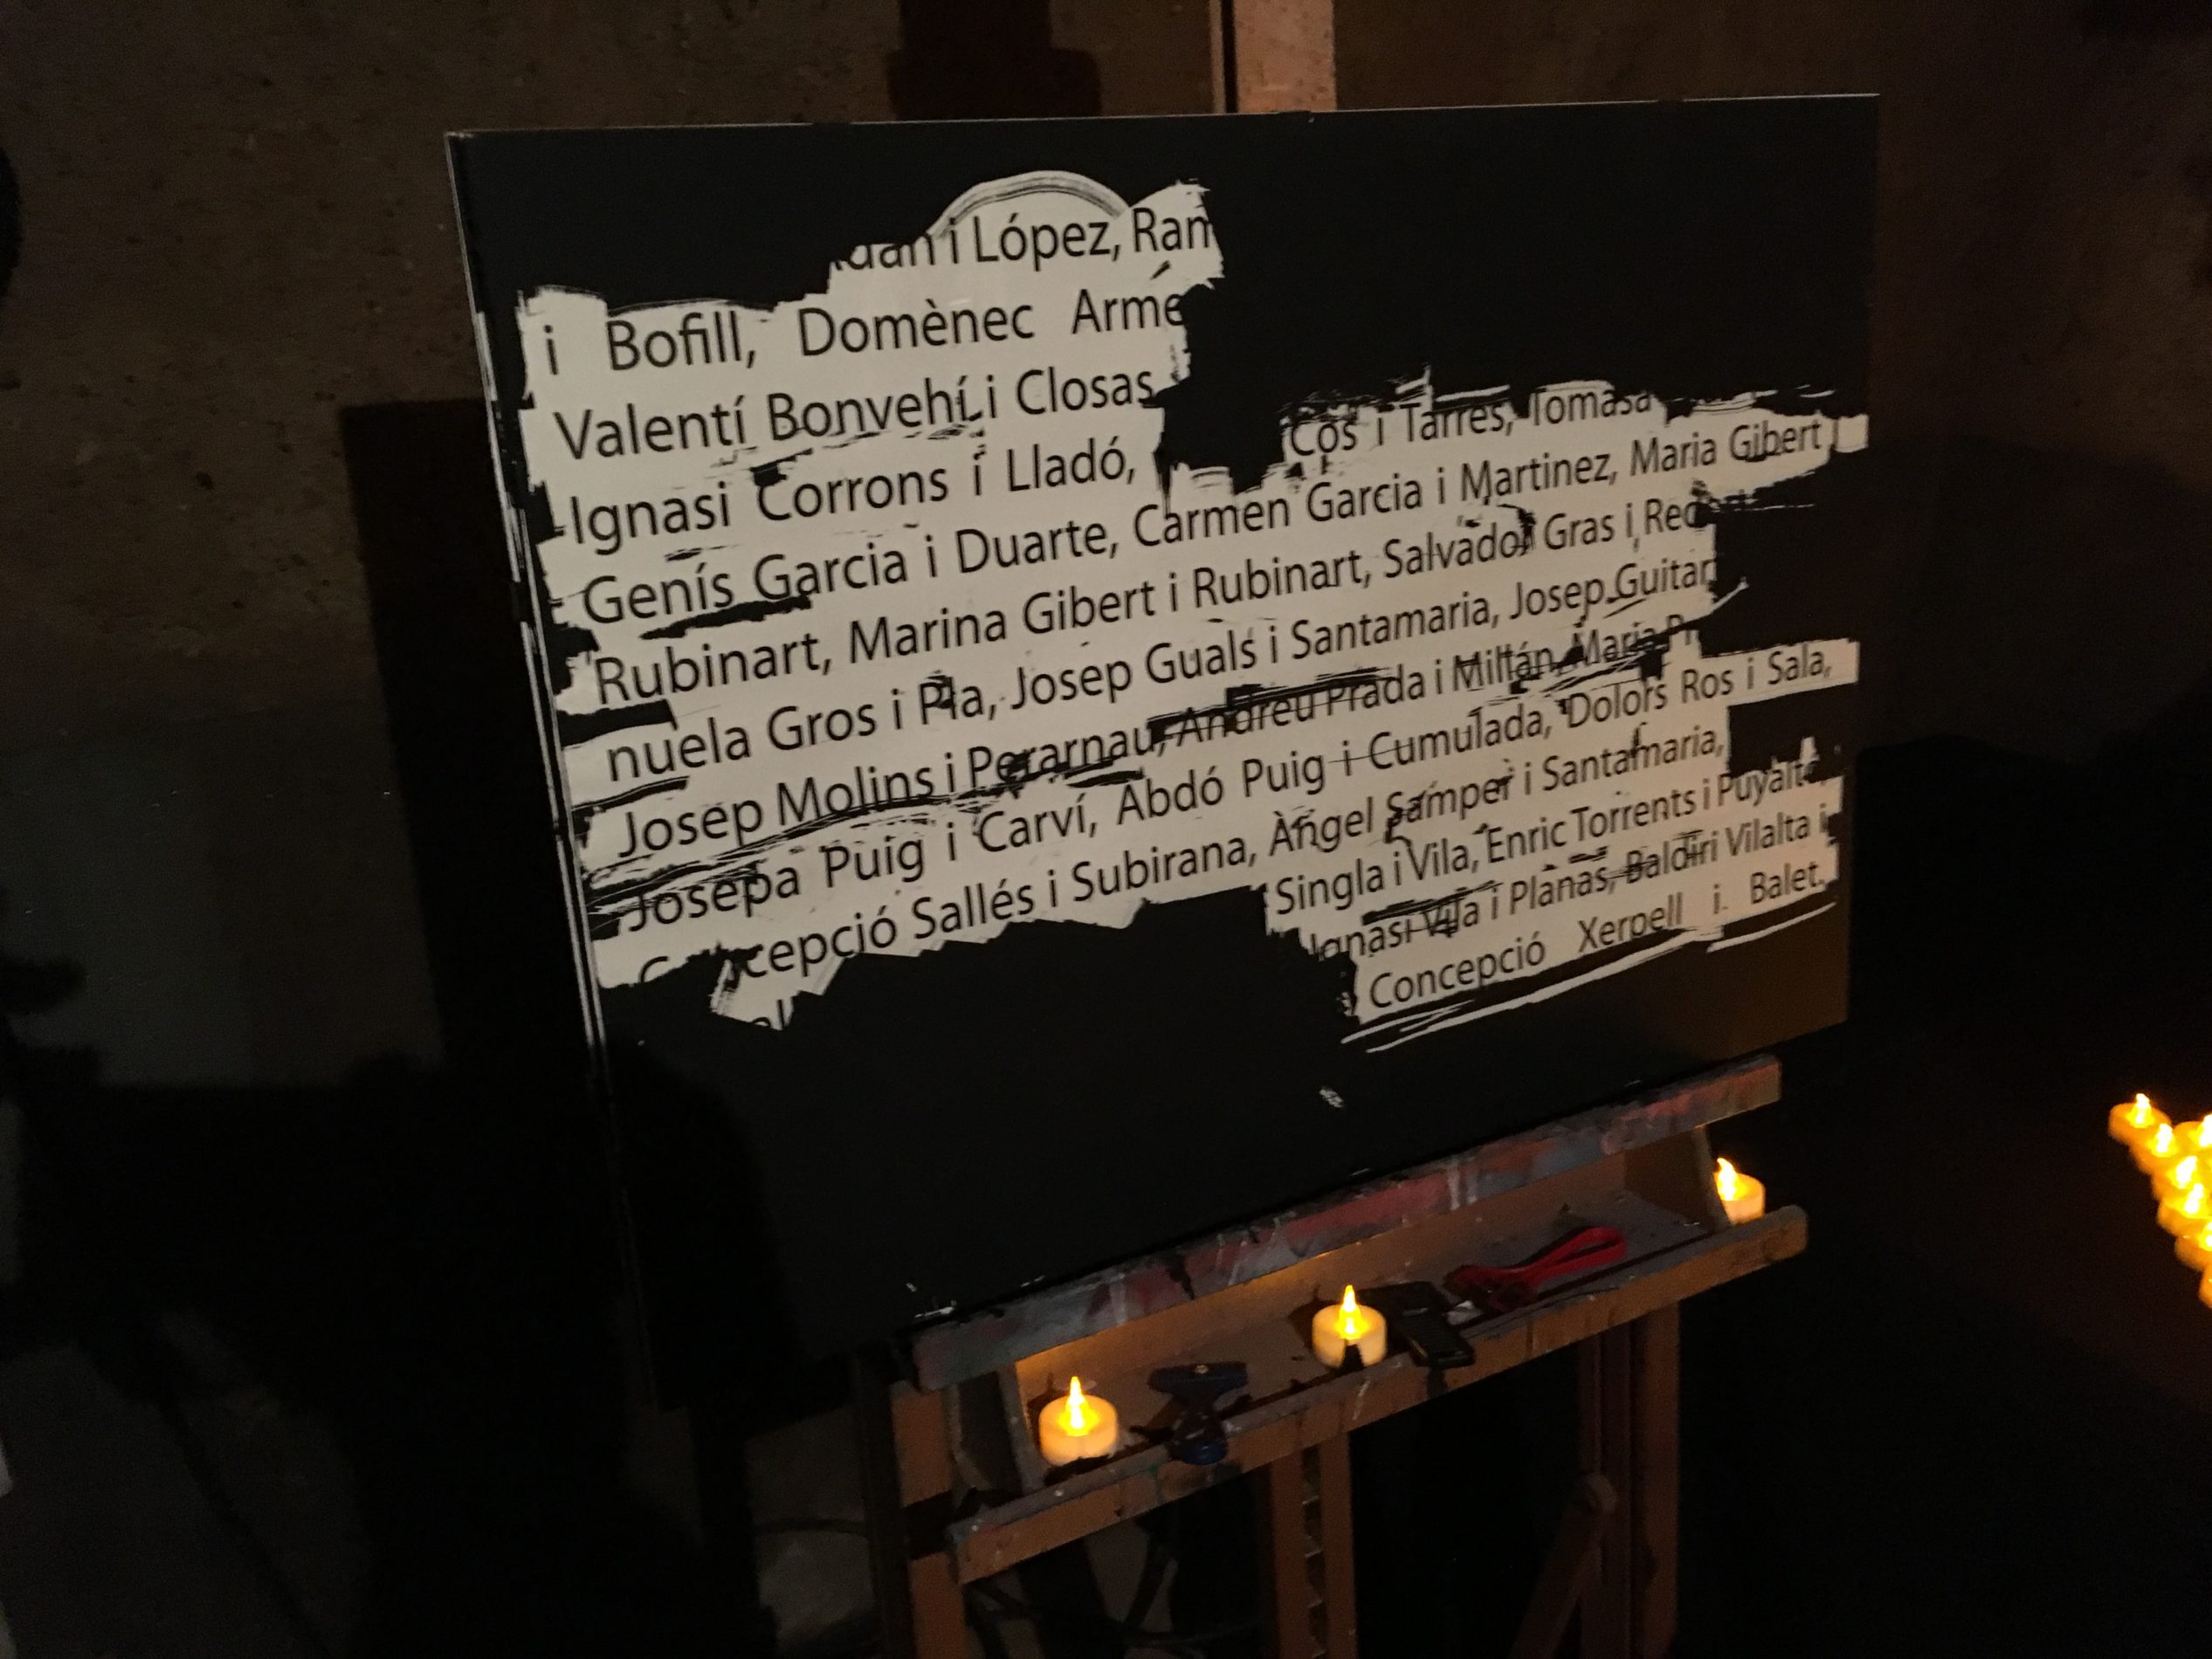 i López,
i Bofill, Domènec
Valentí Bonvehí i Closas
Ignasi Corrons i Lladó, Cos i Tarrés, Tomasa
Genís Garcia i Duarte, Carmen Garcia i Martinez, Maria Gibert i
Rubinart, Marina Gibert i Rubinart, Salvador Gras i
nuela Gros i Pla, Josep Guals i Santamaria, Josep Guitart
Josep Molins i Perarnau, Andreu Prada i Millán, Maria
Josepa Puig i Carví, Abdó Puig i Cumulada, Dolors Ros i Sala,
Concepció Sallés i Subirana, Àngel Samper i Santamaria,
Singla i Vila, Enric Torrents i Puyalto,
Ignasi Vila i Planas, Baldiri Vilalta i
Concepció Xerpell i Balet.